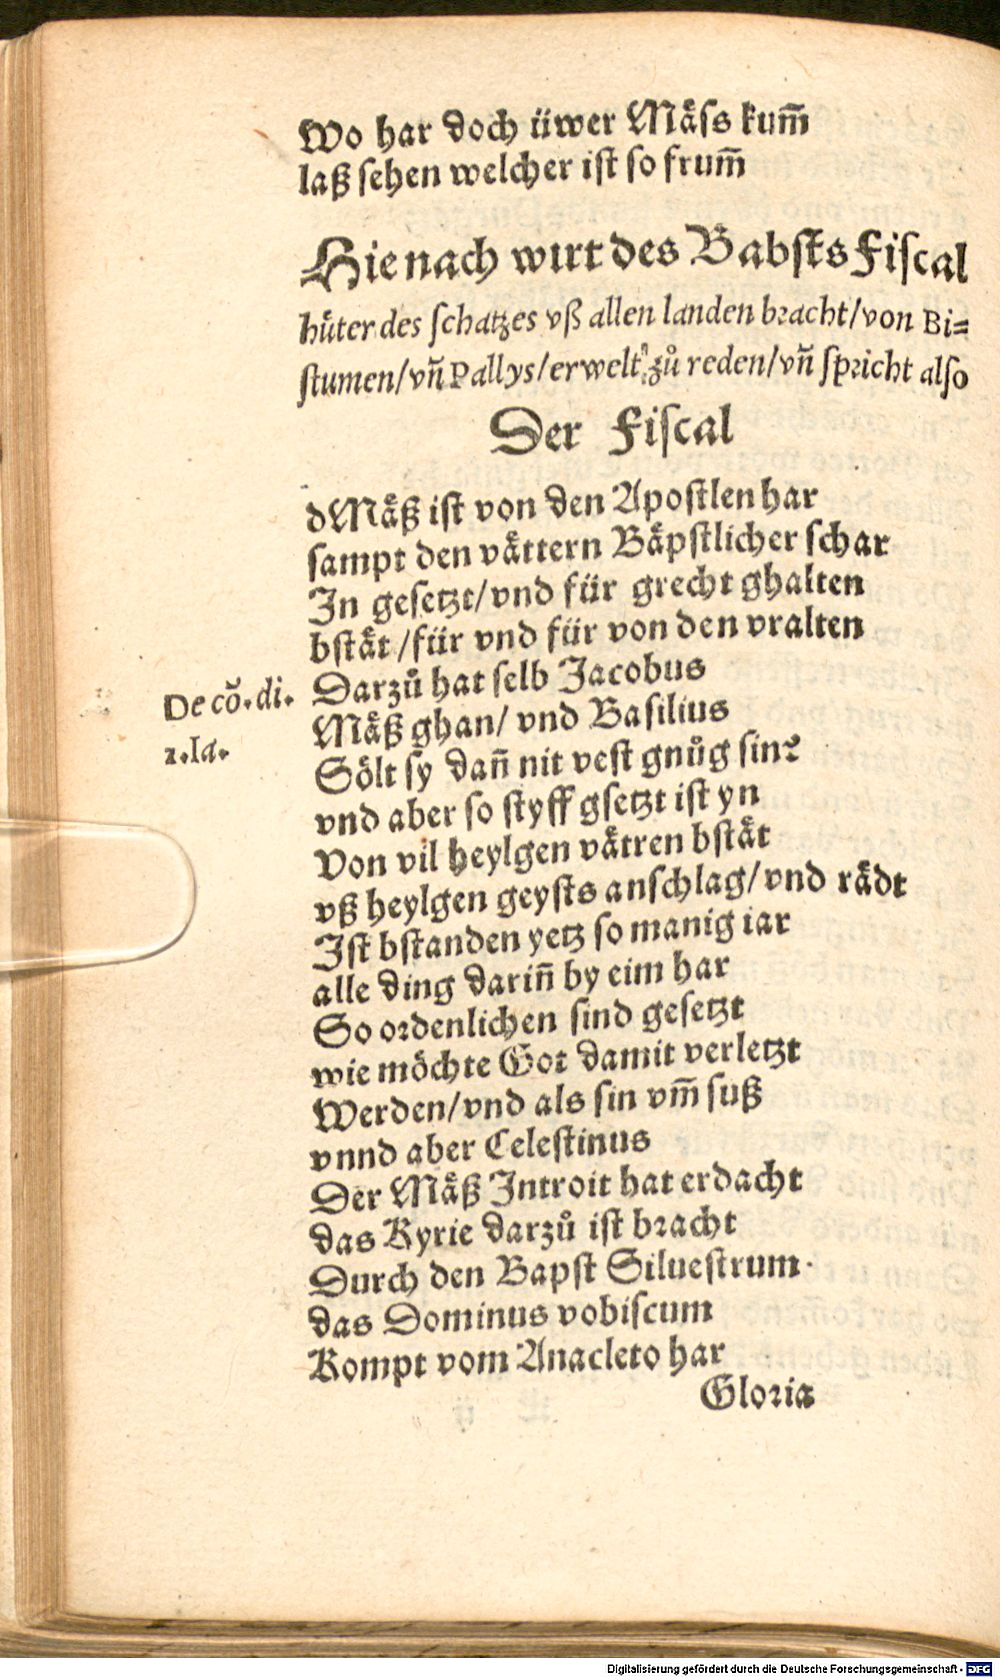 Wo har doch üwer Mäſs kum̄
laß ſehen welcher iſt ſo frum̄
Hie nach wirt des Babſts Fiſcal
hüter des ſchatzes vß allen landen bracht/von Bi⸗
ſtumen/vn̄ Pallys/erwelt zů reden/vn̄ ſpricht alſo
Der Fiſcal
dMäß iſt von den Apoſtlen har
ſampt den vättern Bäpſtlicher ſchar
In geſetzt/vnd für grecht ghalten
bſtät /für vnd für von den vralten
De cō.di.
1.Ia.
Darzů hat ſelb Jacobus
Mäß ghan/ vnd Baſilius
Sölt ſy dan̄ nit veſt gnůg ſin?
vnd aber ſo ſtyff gſetzt iſt yn
Von vil heylgen vätren bſtät
vß heylgen geyſts anſchlag/vnd rädt
Iſt bſtanden yetz ſo manig iar
alle ding darin̄ by eim har
So ordenlichen ſind geſetzt
wie möchte Got damit verletzt
Werden/vnd als ſin vm̄ ſuß
vnnd aber Celeſtinus
Der Mäß Introit hat erdacht
das Kyrie darzů iſt bracht
Durch den Bapſt Silueſtrum.
das Dominus vobiſcum
Kompt vom Anacleto har
Gloria
Digitalisierung gefördert durch die Deutsche Forschungsgemeinschaft - DFG